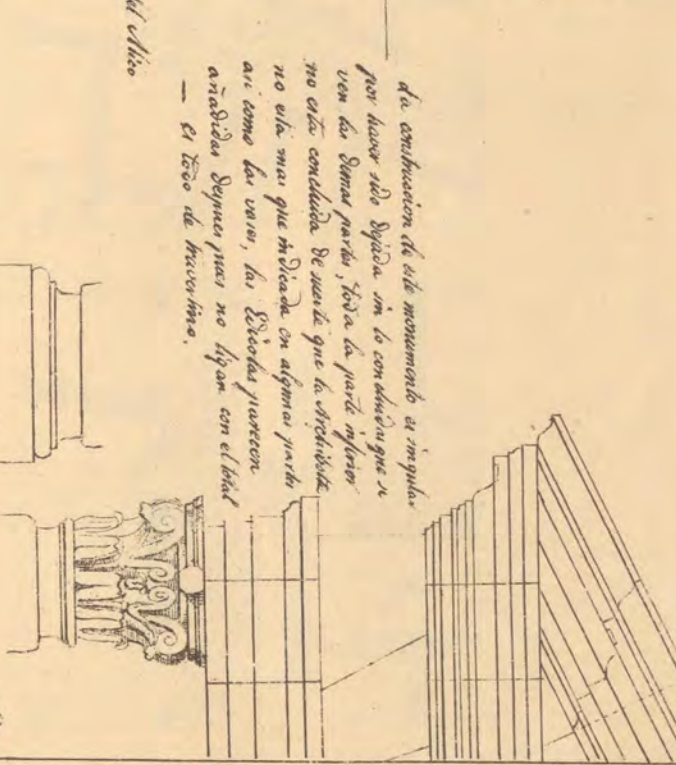 da construccion de este monumento es singular
por haver sido dejada sin lo concluida que se
ven las demas partes, toda la parte inferior
no esta concluida de suerte que la Archivolta
no esta mas que indicada en algunas partes
asi como las vases, las Edicolas parecen
añadidas despues pues no ligan con el total
— es todo de travertino.
del Atico